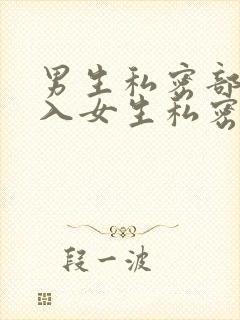 男生私密部
入女生私密
段一波